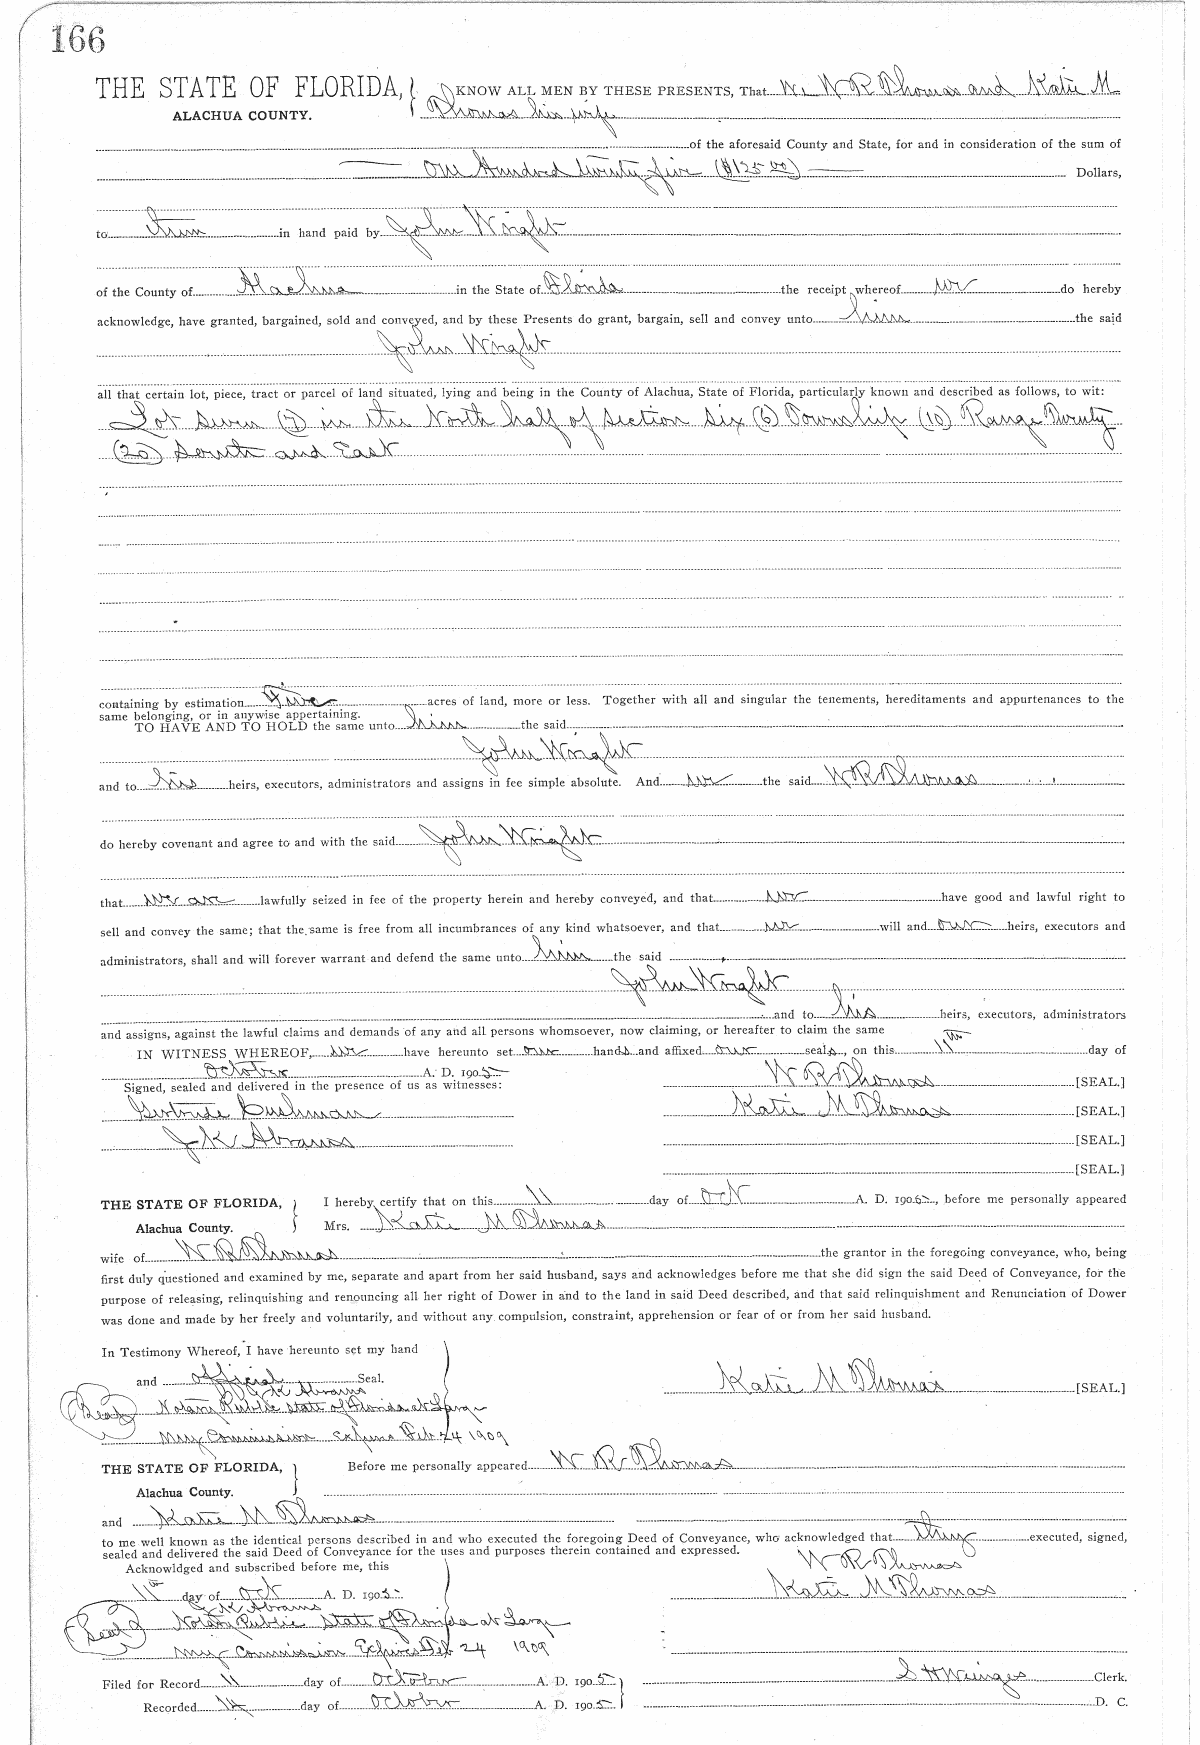 166
THE STATE OF FLORIDA, KNOW ALL MEN BY THESE PRESENTS, That We W R Thomas and Katie M
ALACHUA COUNTY. Thomas his wife
of the aforesaid County and State, for and in consideration of the sum of
One Hundred twenty five ($125 00) Dollars,
to them in hand paid by John Wright
of the County of Alachua in the State of Florida the receipt whereof we do hereby
acknowledge, have granted, bargained, sold and conveyed, and by these Presents do grant, bargain, sell and convey unto him the said
John Wright
all that certain lot, piece, tract or parcel of land situated, lying and being in the County of Alachua, State of Florida, particularly known and described as follows, to wit:
Lot seven (7) in the North half of section six (6) Township (10) Range Twenty
(20) South and East
containing by estimation five acres of land, more or less. Together with all and singular the tenements, hereditaments and appurtenances to the
same belonging, or in anywise appertaining.
TO HAVE AND TO HOLD the same unto him the said
John Wright
and to his heirs, executors, administrators and assigns in fee simple absolute. And we the said W R Thomas
do hereby covenant and agree to and with the said John Wright
that we are lawfully seized in fee of the property herein and hereby conveyed, and that we have good and lawful right to
sell and convey the same; that the same is free from all incumbrances of any kind whatsoever, and that we will and our heirs, executors and
administrators, shall and will forever warrant and defend the same unto him the said
John Wright
and to his heirs, executors, administrators
and assigns, against the lawful claims and demands of any and all persons whomsoever, now claiming, or hereafter to claim the same
IN WITNESS WHEREOF, we have hereunto set our hands and affixed our seals, on this 11th day of
October A. D. 1905 W R Thomas [SEAL.]
Signed, sealed and delivered in the presence of us as witnesses:
Gertrude Cushman Katie M Thomas [SEAL.]
J K Abrams [SEAL.]
[SEAL.]
THE STATE OF FLORIDA, I hereby certify that on this 11 day of Oct A. D. 1905, before me personally appeared
Alachua County. Mrs. Katie M Thomas
wife of W R Thomas the grantor in the foregoing conveyance, who, being
first duly questioned and examined by me, separate and apart from her said husband, says and acknowledges before me that she did sign the said Deed of Conveyance, for the
purpose of releasing, relinquishing and renouncing all her right of Dower in and to the land in said Deed described, and that said relinquishment and Renunciation of Dower
was done and made by her freely and voluntarily, and without any compulsion, constraint, apprehension or fear of or from her said husband.
In Testimony Whereof, I have hereunto set my hand
and official Seal. Katie M Thomas [SEAL.]
J K Abrams
(Seal) Notary Public State of Florida at Large
My Commission expires Feb 24 1909
THE STATE OF FLORIDA, Before me personally appeared W R Thomas
Alachua County.
and Katie M Thomas
to me well known as the identical persons described in and who executed the foregoing Deed of Conveyance, who acknowledged that they executed, signed,
sealed and delivered the said Deed of Conveyance for the uses and purposes therein contained and expressed.
Acknowldged and subscribed before me, this W R Thomas
11th day of Oct A. D. 1905 Katie M Thomas
J K Abrams
(Seal) Notary Public State of Florida at Large
My Commission Expires Feb 24 1909
Filed for Record 11 day of October A. D. 1905 S H Wienges Clerk.
Recorded 14 day of October A. D. 1905 D. C.